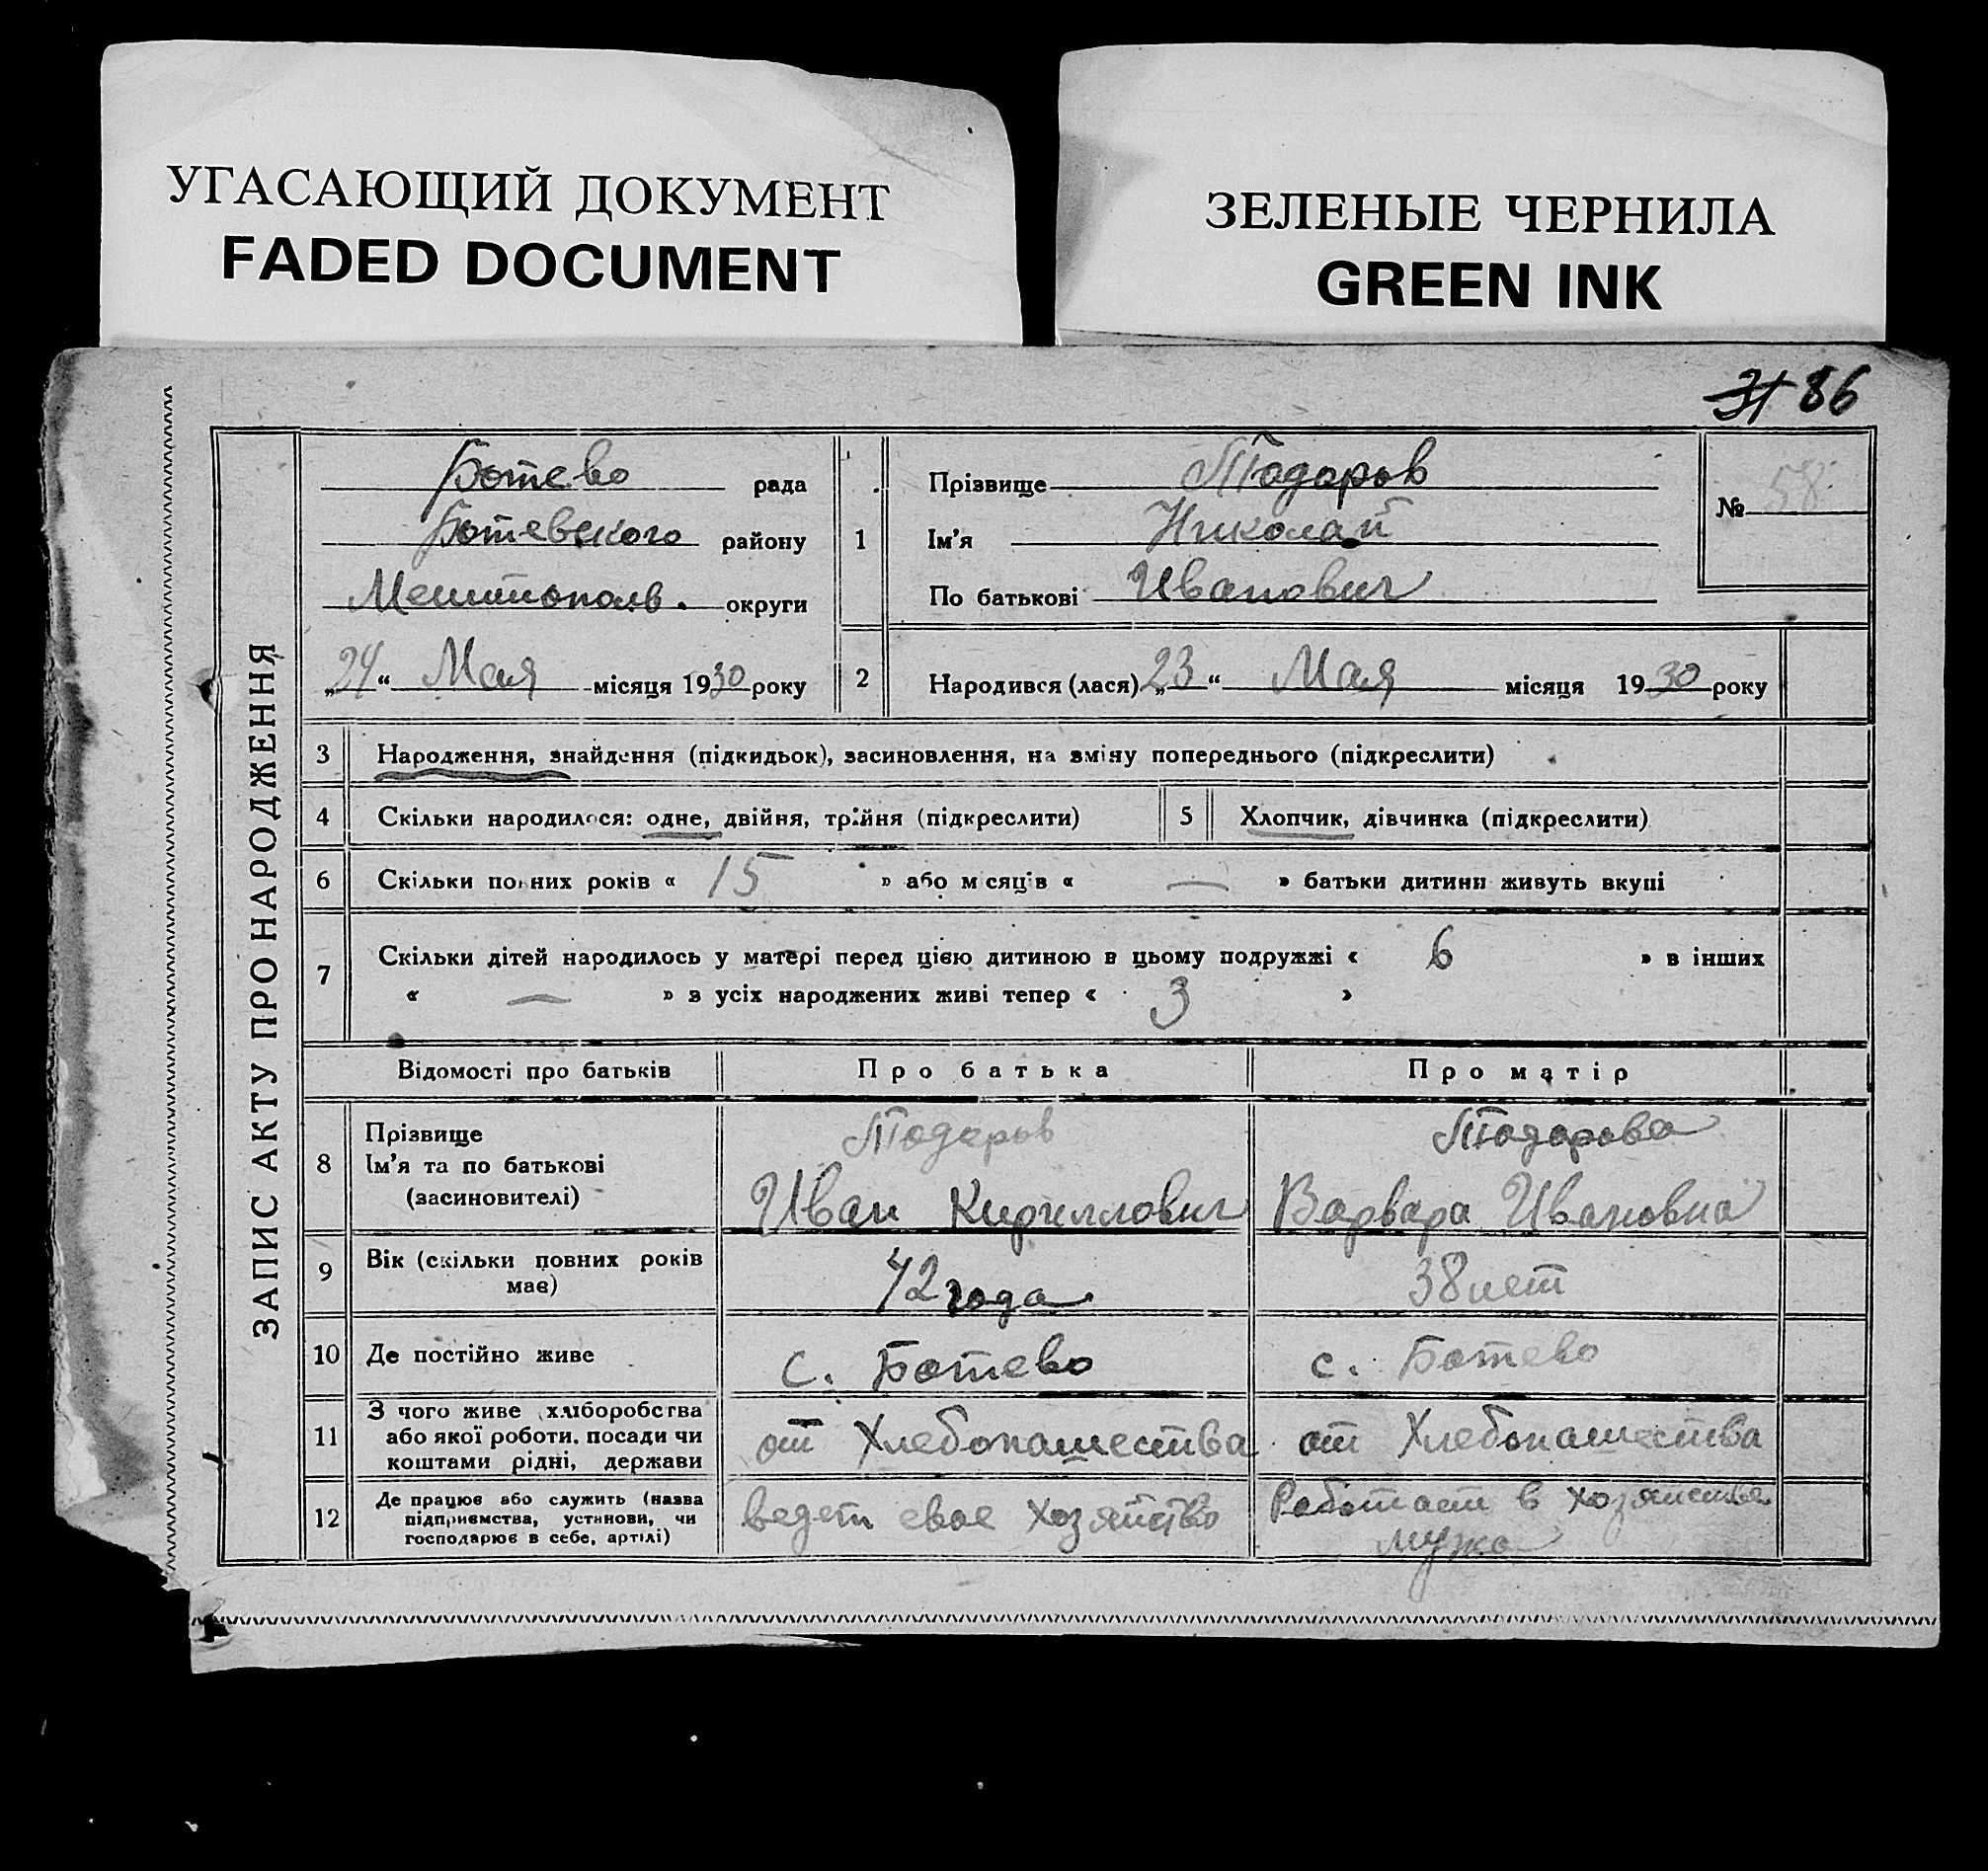 УГАСАЮЩИЙ ДОКУМЕНТ
FADED DOCUMENT
ЗЕЛЕНЫЕ ЧЕРНИЛА
GREEN INK
31 86
ЗАПИС АКТУ ПРО НАРОДЖЕННЯ
Ботево рада
Ботевского району
Мелитополь. округи
„24“ Мая місяця 1930 року
1
Прізвище Тодоров
Ім’я Николай
По батькові Иванович
№ 58
2 Народився (лася) „23“ Мая місяця 1930 року
3 Народження, знайдення (підкидьок), засиновлення, на зміну попереднього (підкреслити)
4 Скільки народилося: одне, двійня, трійня (підкреслити) 5 Хлопчик, дівчинка (підкреслити)
6 Скільки повних років « 15 » або місяців « — » батьки дитини живуть вкупі
7 Скільки дітей народилось у матері перед цією дитиною в цьому подружжі « 6 » в інших
« — » з усіх народжених живі тепер « 3 »
Відомості про батьків Про батька Про матір
8 Прізвище
Ім’я та по батькові
(засиновителі)
Тодоров
Иван Кириллович
Тодорова
Варвара Ивановна
9 Вік (скільки повних років
має)
42 года
38 лет
10 Де постійно живе с. Ботево с. Ботево
11 З чого живе хліборобства
або якої роботи, посади чи
коштами рідні, держави
от Хлебопашества
от Хлебопашества
12 Де працює або служить (назва
підприємства, установи, чи
господарює в себе, артілі)
ведет свое хозяйство
Работает в хозяйстве
мужа